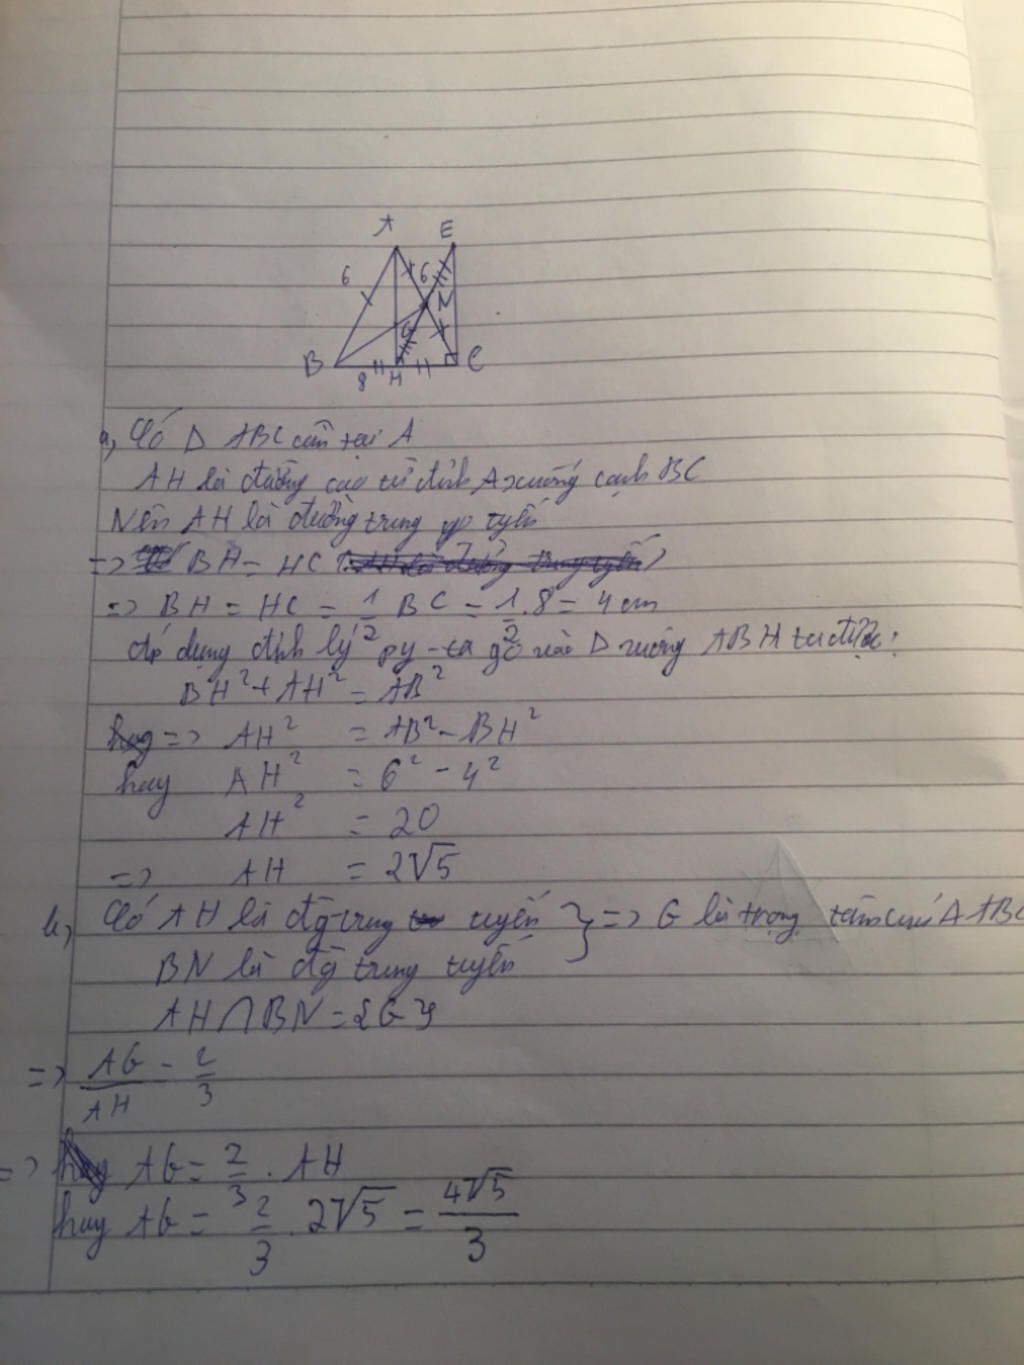 A E
6 6
N
G
B 8 H C
a, Có Δ ABC cân tại A
AH là đường cao từ đỉnh A xuống cạnh BC
Nên AH là đường trung tuyến
=> BH = HC
=> BH = HC = 1/2 BC = 1/2 . 8 = 4 cm
Áp dụng định lý py-ta go vào Δ vuông ABH ta được:
BH² + AH² = AB²
=> AH² = AB² - BH²
hay AH² = 6² - 4²
AH² = 20
=> AH = 2√5
b, Có AH là đg trung tuyến } => G là trọng tâm của Δ ABC
BN là đg trung tuyến
AH ∩ BN = {G}
=> AG/AH = 2/3
=> AG = 2/3 . AH
hay AG = 2/3 . 2√5 = 4√5/3